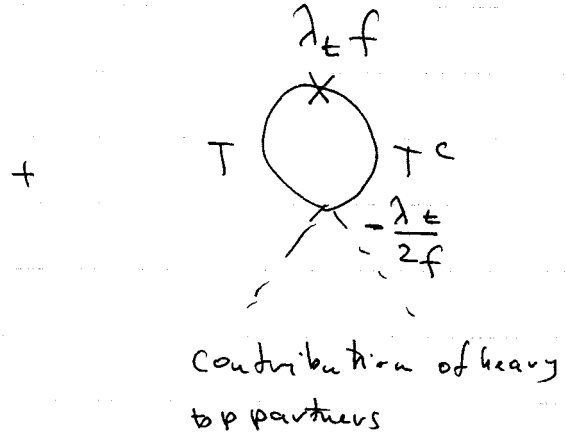 λ_t f
+ T T^c
- λ_t / 2f
contribution of heavy
top partners